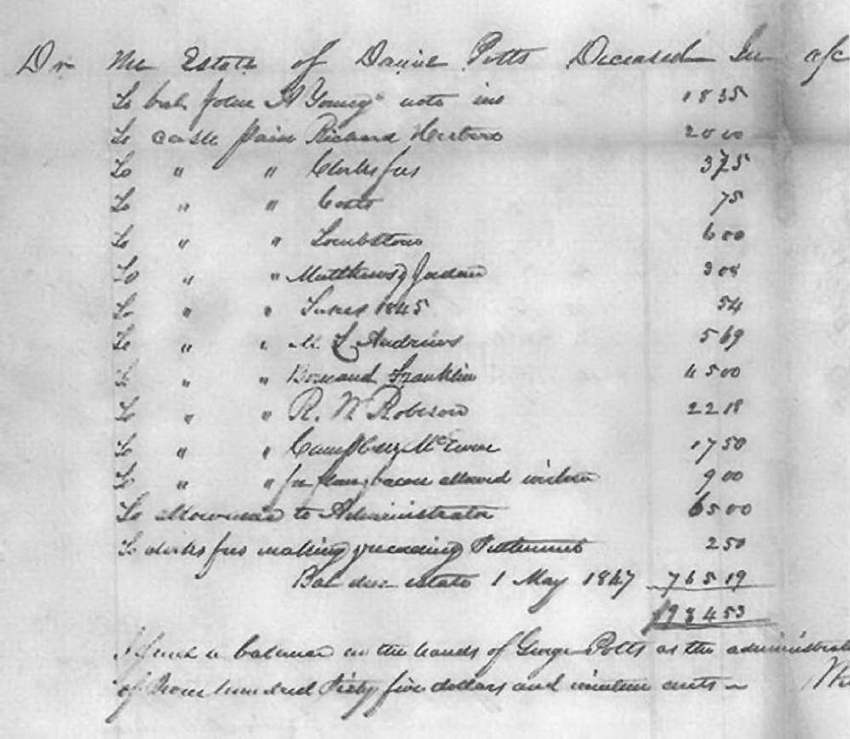 Dr The Estate of Daniel Potts Deceased In a/c
To bal John A Young note ins 18 35
To cash paid Richard 20 00
To " " Clerks fees 3 75
To " " Costs 75
To " " Tombstone 6 00
To " " Matthews & Jordan 3 08
To " " Taxes 1845 54
To " " M L Andrews 5 69
To " " Franklin 45 00
To " " R. N Roberson 22 18
To " " Campbell McEwen 17 50
To " " for bacon allowed widow 9 00
To allowance to Administrator 65 00
To clerks fees making & recording Settlement 2 50
Bal due estate 1 May 1847 765 19
984 53
I find a balance in the hands of George Potts as the administrator
of hundred Sixty five dollars and nineteen cents